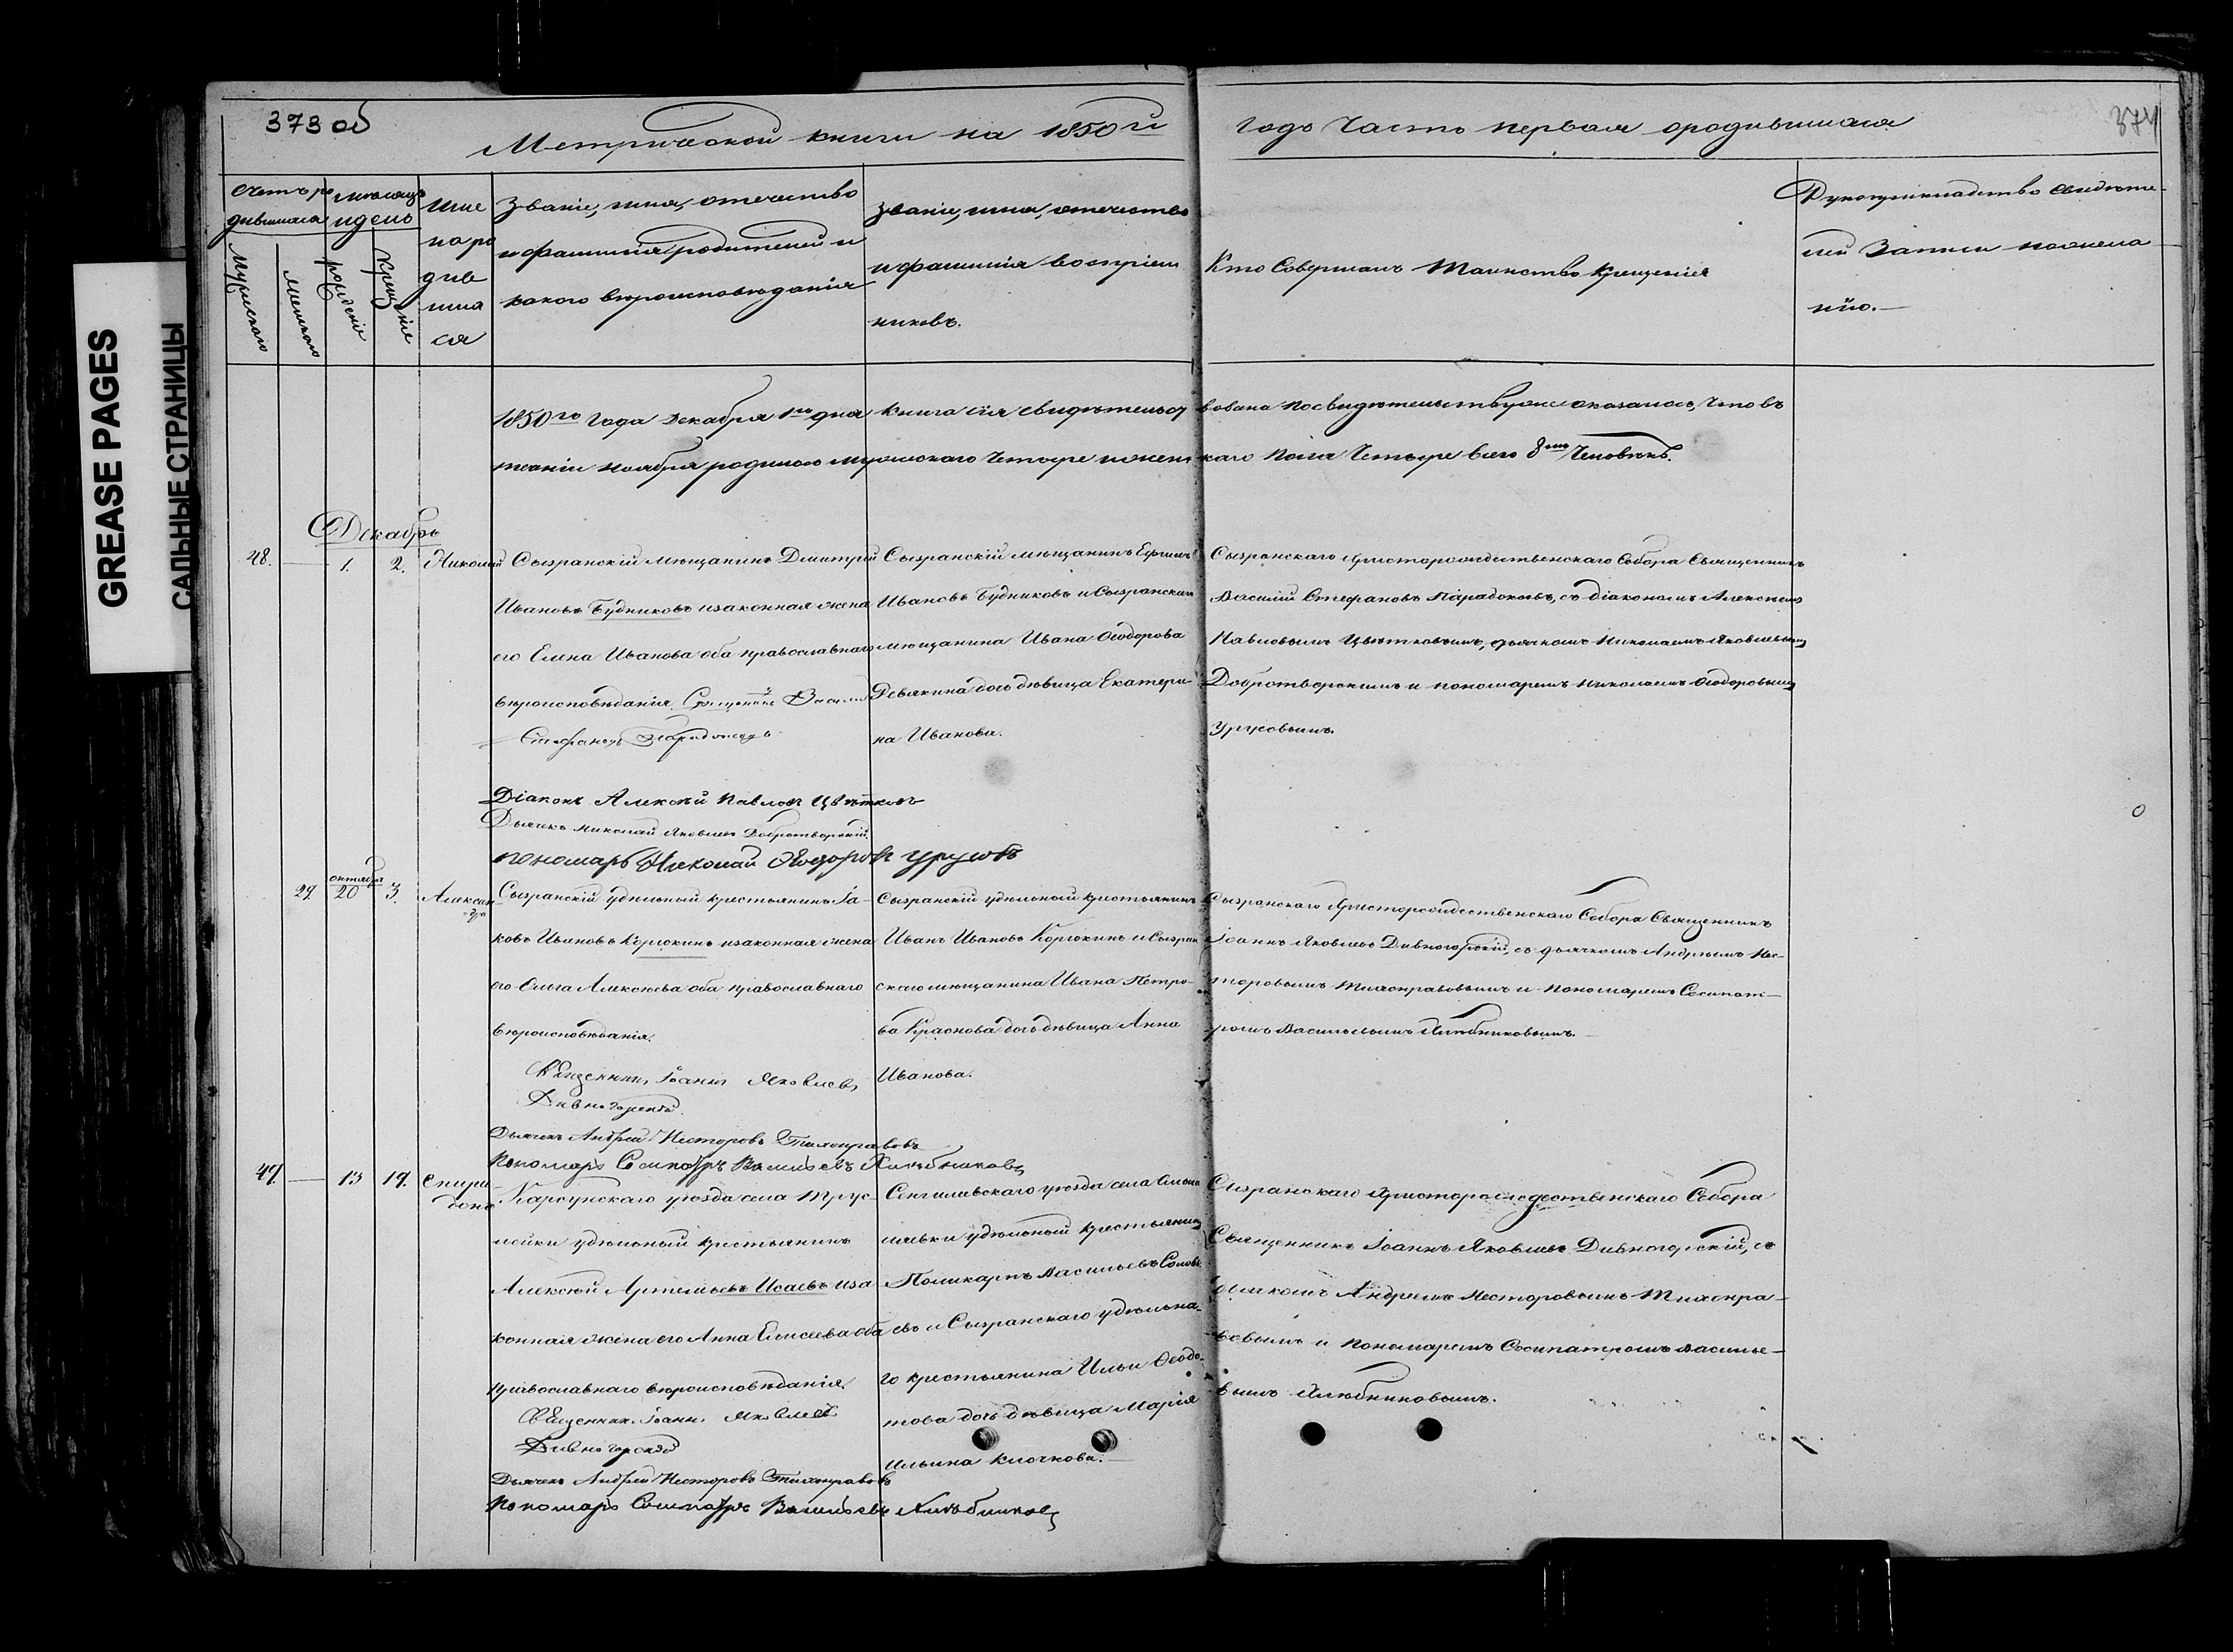 GREASE PAGES
САЛЬНЫЕ СТРАНИЦЫ
373 об
374
Метрической книги на 1850й
годъ Часть первая ородившихся
Счетъ ро
дившихся
Мужескаго
Женскаго
месяцъ
и день
рожденіе
Крещеніе
Имя
наро
див
ших
ся
Званіе, имя, отечество
и фамилія родителей и
какого вѣроисповѣданія
Званіе, имя, отечество
и фамилія воспріем
никовъ.
Кто Совершалъ Таинство Крещенія
Рукоприкладство свидѣте-
лей Записи пожела
нію.
1850го Года Декабря 1го дня книга сія свидѣтельст
вована по свидѣтельству оказалось, Что въ
теченіи Ноября родилось мужескаго Четыре и женс
каго пола Четыре всего 8мь Человѣкъ.
Декабрь
48. — 1. 2. Николай
Сызранскій мѣщанинъ Димитрій
Ивановъ Будниковъ и законная жена
его Елена Иванова оба православнаго
вѣроисповѣданія. Священникъ Василій
Стефановъ Парадоксовъ
Діаконъ Алексѣй Павловъ Цвѣтковъ
Дьячекъ Николай Яковлевъ Добротворскій
пономарь Николай Ѳеодоровъ Урусовъ
Сызранскій мѣщанинъ Ефимъ
Ивановъ Будниковъ и Сызранскаго
мѣщанина Ивана Ѳеодорова
Ревякина дочь дѣвица Екатери
на Иванова.
Сызранскаго Христорождественскаго Собора Священникъ
Василій Стефановъ Парадоксовъ, съ діакономъ Алексѣемъ
Павловымъ Цвѣтковымъ, дьячкомъ Николаемъ Яковлевымъ
Добротворскимъ и пономаремъ Николаемъ Ѳеодоровымъ
Урусовымъ.
29. октября 20 3. Алексан
дра
Сызранскій удѣльный крестьянинъ Іа-
ковъ Ивановъ Корюкинъ и законная жена
его Ольга Алексѣева оба православнаго
вѣроисповѣданія.
Священникъ Іоаннъ Яковлевъ
Дивногорскій
Дьячекъ Андрей Несторовъ Тихонравовъ
Пономарь Сосипатръ Васильевъ Хлѣбниковъ
Сызранскій удѣльный крестьянинъ
Иванъ Ивановъ Корюкинъ и Сызран
скаго мѣщанина Ивана Петро-
ва Краснова дочь дѣвица Анна
Иванова.
Сызранскаго Христорождественскаго Собора Священникъ
Іоаннъ Яковлевъ Дивногорскій, съ дьячкомъ Андреемъ Нес-
торовымъ Тихонравовымъ и пономаремъ Сосипат-
ромъ Васильевымъ Хлѣбниковымъ.
49. — 13 19. Спири-
донъ
Карсунскаго уѣзда села Трус-
лейки удѣльный крестьянинъ
Алексѣй Артемьевъ Исаевъ и за
конная жена его Анна Елисеева оба
православнаго вѣроисповѣданія.
Священникъ Іоаннъ Яковлевъ
Дивногорскій
Дьячекъ Андрей Несторовъ Тихонравовъ
Пономарь Сосипатръ Васильевъ Хлѣбниковъ
Сенгилевскаго уѣзда села
удѣльный крестьянинъ
Поликарпъ Васильевъ Соловь
евъ и Сызранскаго удѣльна-
го крестьянина Ильи Ѳеодо-
това дочь дѣвица Марія
Ильина Клочкова.
Сызранскаго Христорождественскаго Собора
Священникъ Іоаннъ Яковлевъ Дивногорскій, съ
дьячкомъ Андреемъ Несторовымъ Тихонра-
вовымъ и пономаремъ Сосипатромъ Василье-
вымъ Хлѣбниковымъ.